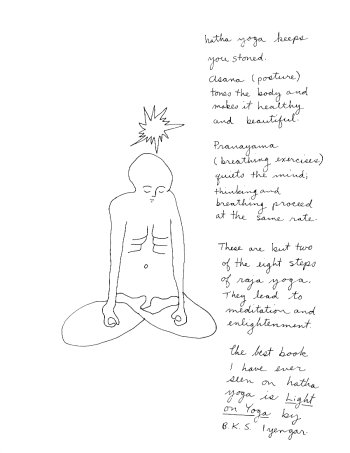 hatha yoga keeps
you stoned.
asana (posture)
tones the body and
makes it healthy
and beautiful.
Pranayama
(breathing exercises)
quiets the mind;
thinking and
breathing proceed
at the same rate.
These are but two
of the eight steps
of raja yoga.
They lead to
meditation and
enlightenment
The best book
I have ever
seen on hatha
yoga is Light
on Yoga by
B.K.S. Iyengar